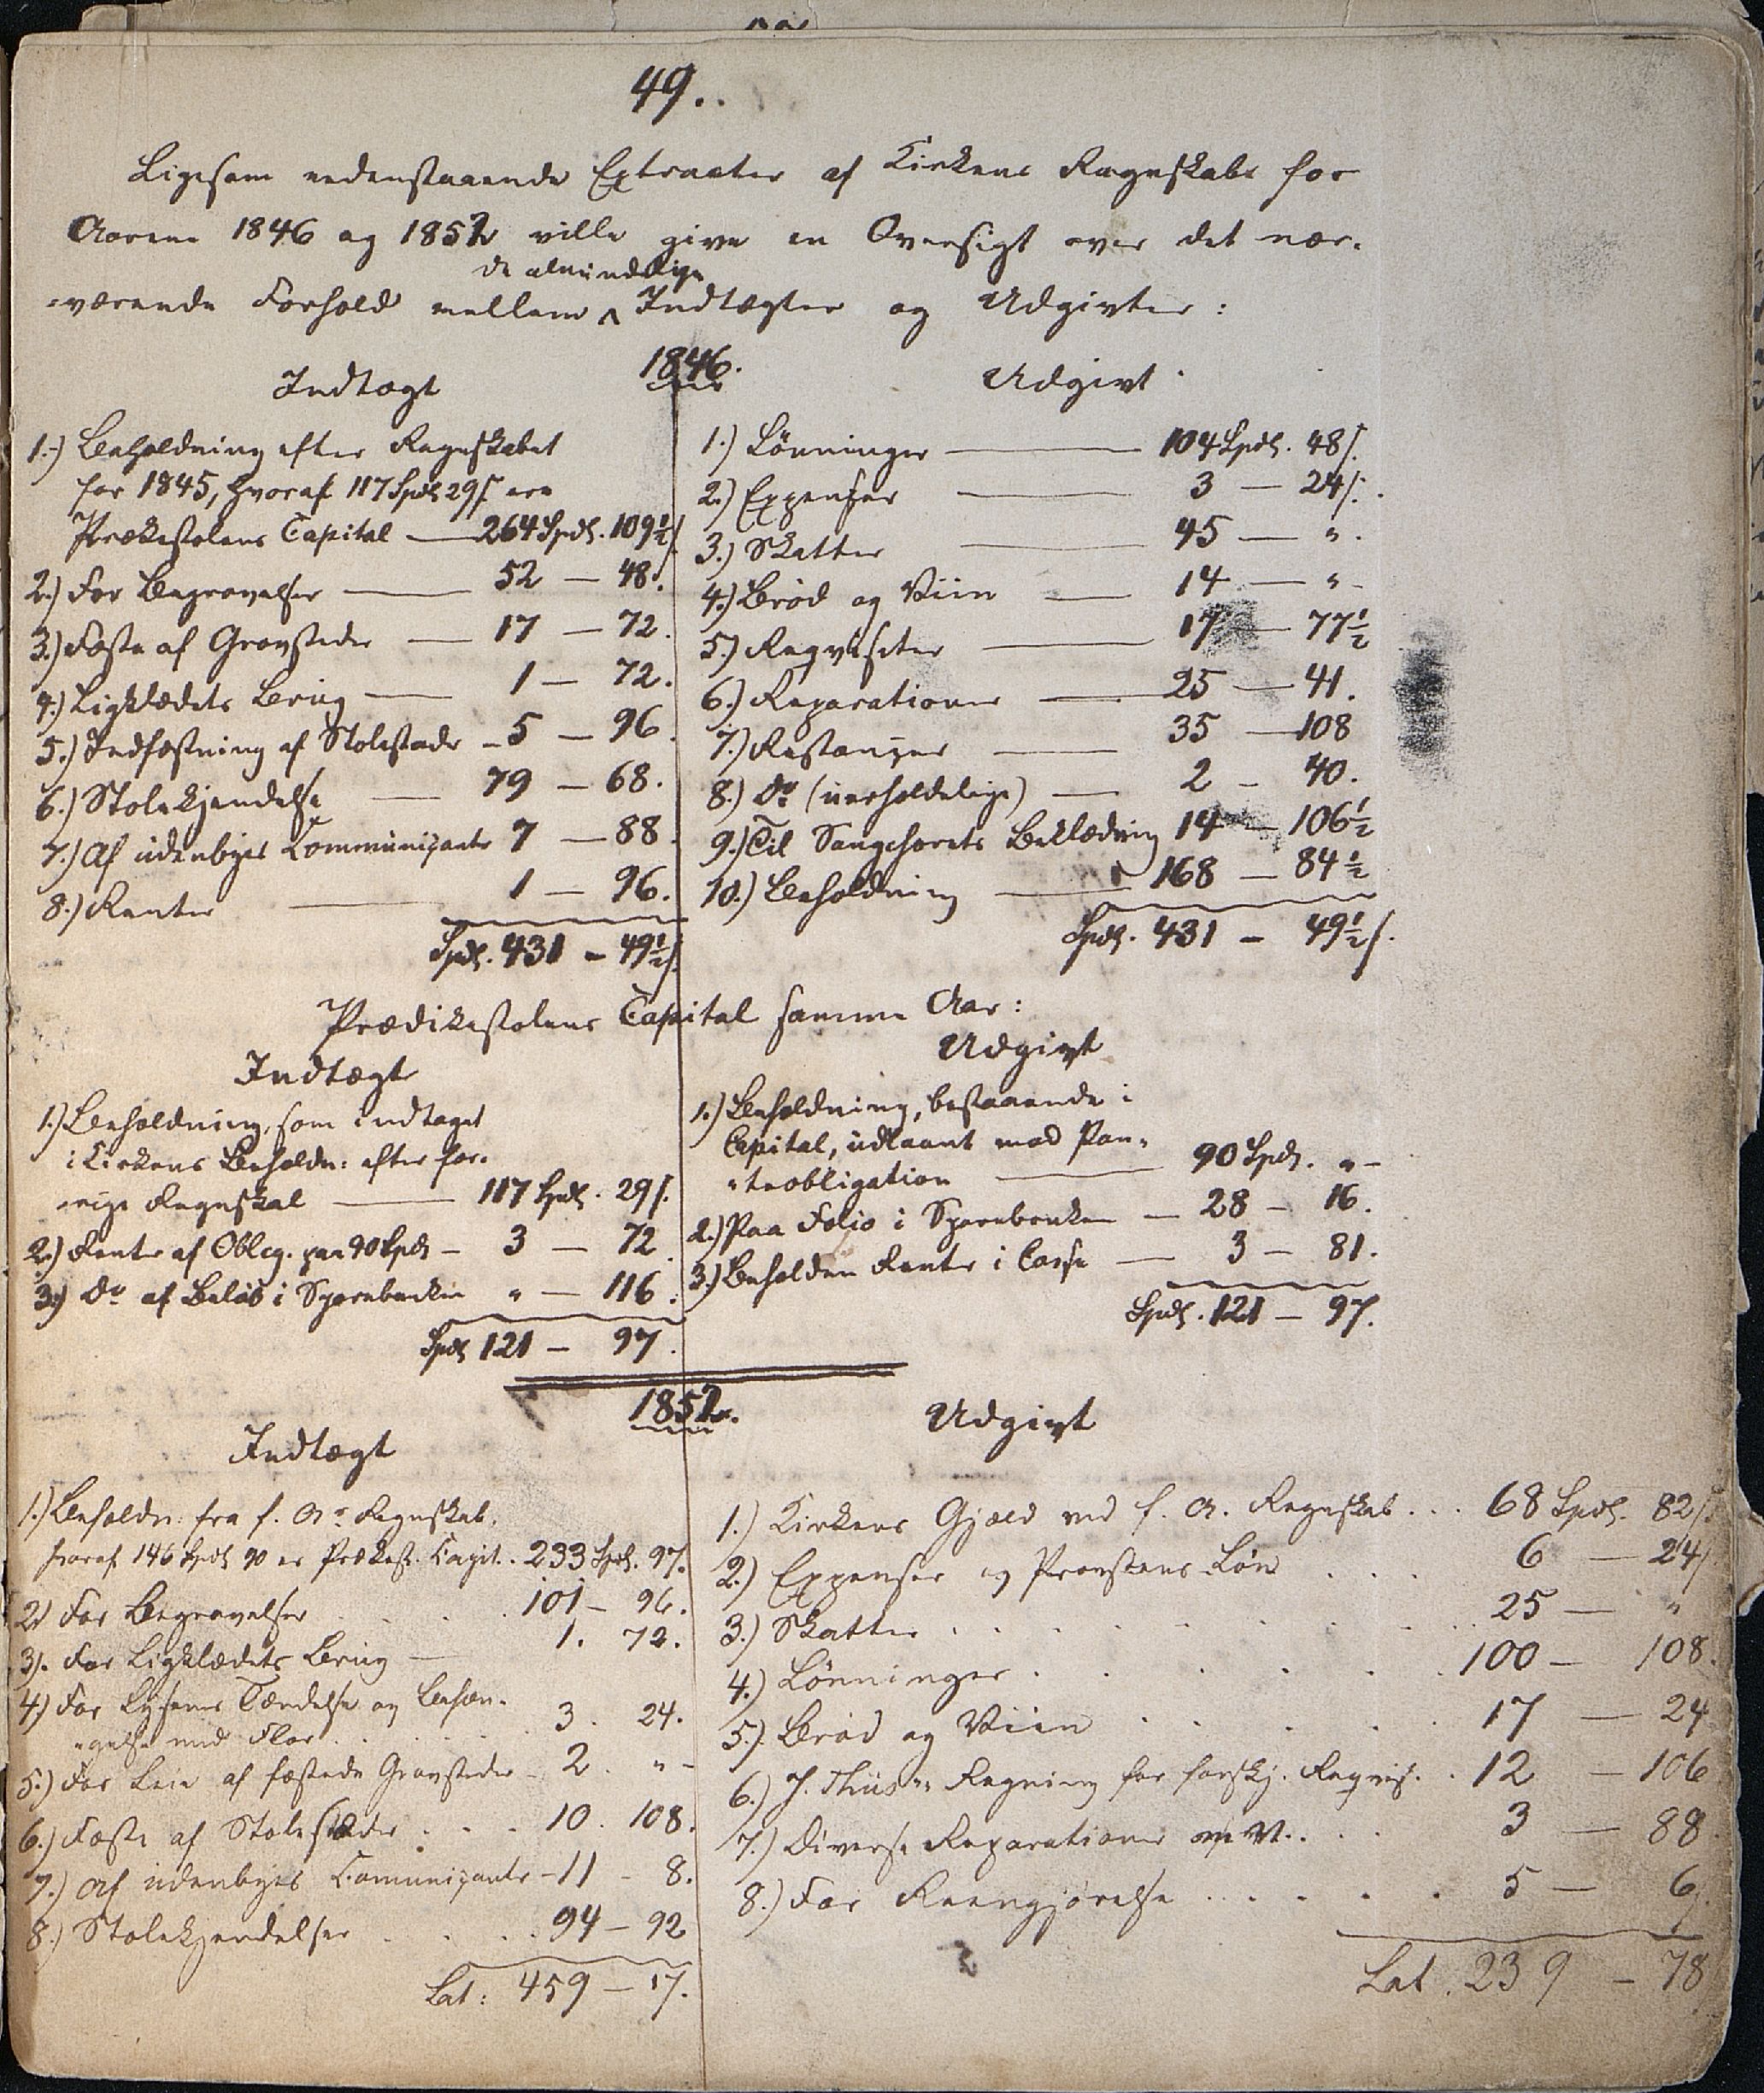 49.
Ligesom nedenstaaende Extracter af Kirkens Regnskabe for
Aarene 1846 og 1852 ville give en Oversigt over det nær-
værende Forhold mellem de almindelige Indtægter og Udgivter:
1846.
Indtægt
1.) Beholdning efter Regnskabet
for 1845, hvoraf 117 Spd. 29 s. ere
Prækestolens Capital — 264 Spd. 109½ s.
2.) For Begravelser — 52 — 48.
3.) Fæste af Gravsteder — 17 — 72.
4.) Ligklædets Brug — 1 — 72.
5.) Indfæstning af Stolestade — 5 — 96.
6.) Stolekjendelse — 79 — 68.
7.) Af udenbyes Communicante 7 — 88.
8.) Renter — 1 — 96.
Spd. 431 — 49½ s.
Udgivt
1.) Lönninger — 104 Spd. 48 s.
2.) Expenser — 3 — 24 s.
3.) Skatter — 45 — ".
4.) Bröd og Viin — 14 — " -
5.) Reqvisiter — 17 — 77½
6.) Reparationer — 25 — 41.
7.) Restanzer — 35 — 108
8.) Do (uerholdelige) — 2 — 40.
9.) Til Sangchorets Beklædning 14 — 106½
10.) Beholdning — 168 — 84½
Spd. 431 — 49½ s.
Prædikestolens Capital samme Aar:
Indtægt
1.) Beholdning, som indtaget
i Kirkens Beholdn: efter for-
rige Regnskab — 117 Spd. 29 s.
2.) Rente af Oblig. paa 90 Spd — 3 — 72
3.) Do af Beløb i Sparebanken " — 116.
Spd 121 — 97.
Udgivt
1.) Beholdning, bestaaende i
Capital, udlaant mod Pan-
teobligation — 90 Spd. " -
2.) Paa Folio i Sparebanken — 28 — 16.
3.) Beholden Rente i Casse — 3 — 81.
Spd. 121 — 97.
1852.
Indtægt
1.) Beholdn: fra f. Ars Regnskab,
hvoraf 146 Spd 90 er Prækest. Capit. . 233 Spd. 97.
2.) For Begravelser . . . . 101 — 96.
3.) For Ligklædets Brug — 1. 72.
4.) For Lysenes Tændelse og Behæn-
gelse med Flor . . . . 3. 24.
5.) For Leie af fæstede Gravsteder — 2. " -
6.) Fæste af Stolestader . . . 10. 108.
7.) Af udenbyes Communicante — 11 — 8.
8.) Stolekjendelser . . . . 94 — 92
Lat: 459 — 17.
Udgivt
1.) Kirkens Gjæld ved f. A. Regnskab . . . 68 Spd. 82 s.
2.) Expenser og Provstens Løn . . . 6 — 24 s.
3.) Skatter . . . . . . 25 — "
4.) Lönninger . . . . . 100 — 108.
5.) Bröd og Viin . . . . . 17 — 24
6.) J. Thiis's Regning for forskj. Reqvis. . 12 — 106
7.) Diverse Reparationer . . . 3 — 88.
8.) For Reengjørelse . . . . . 5 — 6.
Lat. 239 — 78